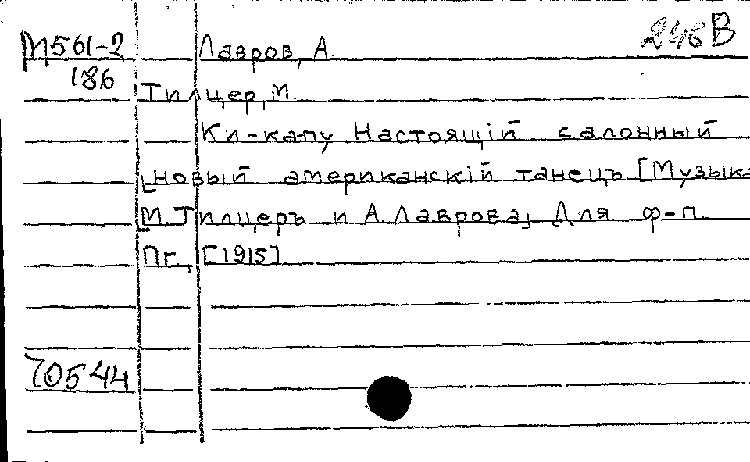 М561-2 Лавров, А. 246В
186
Тилцер, М.
Ки-капу Настоящій салонный
[новый американскій танецъ [Музыка
М. Тилцеръ и А. Лаврова] Для ф-п.
Пг., [1915]
70544